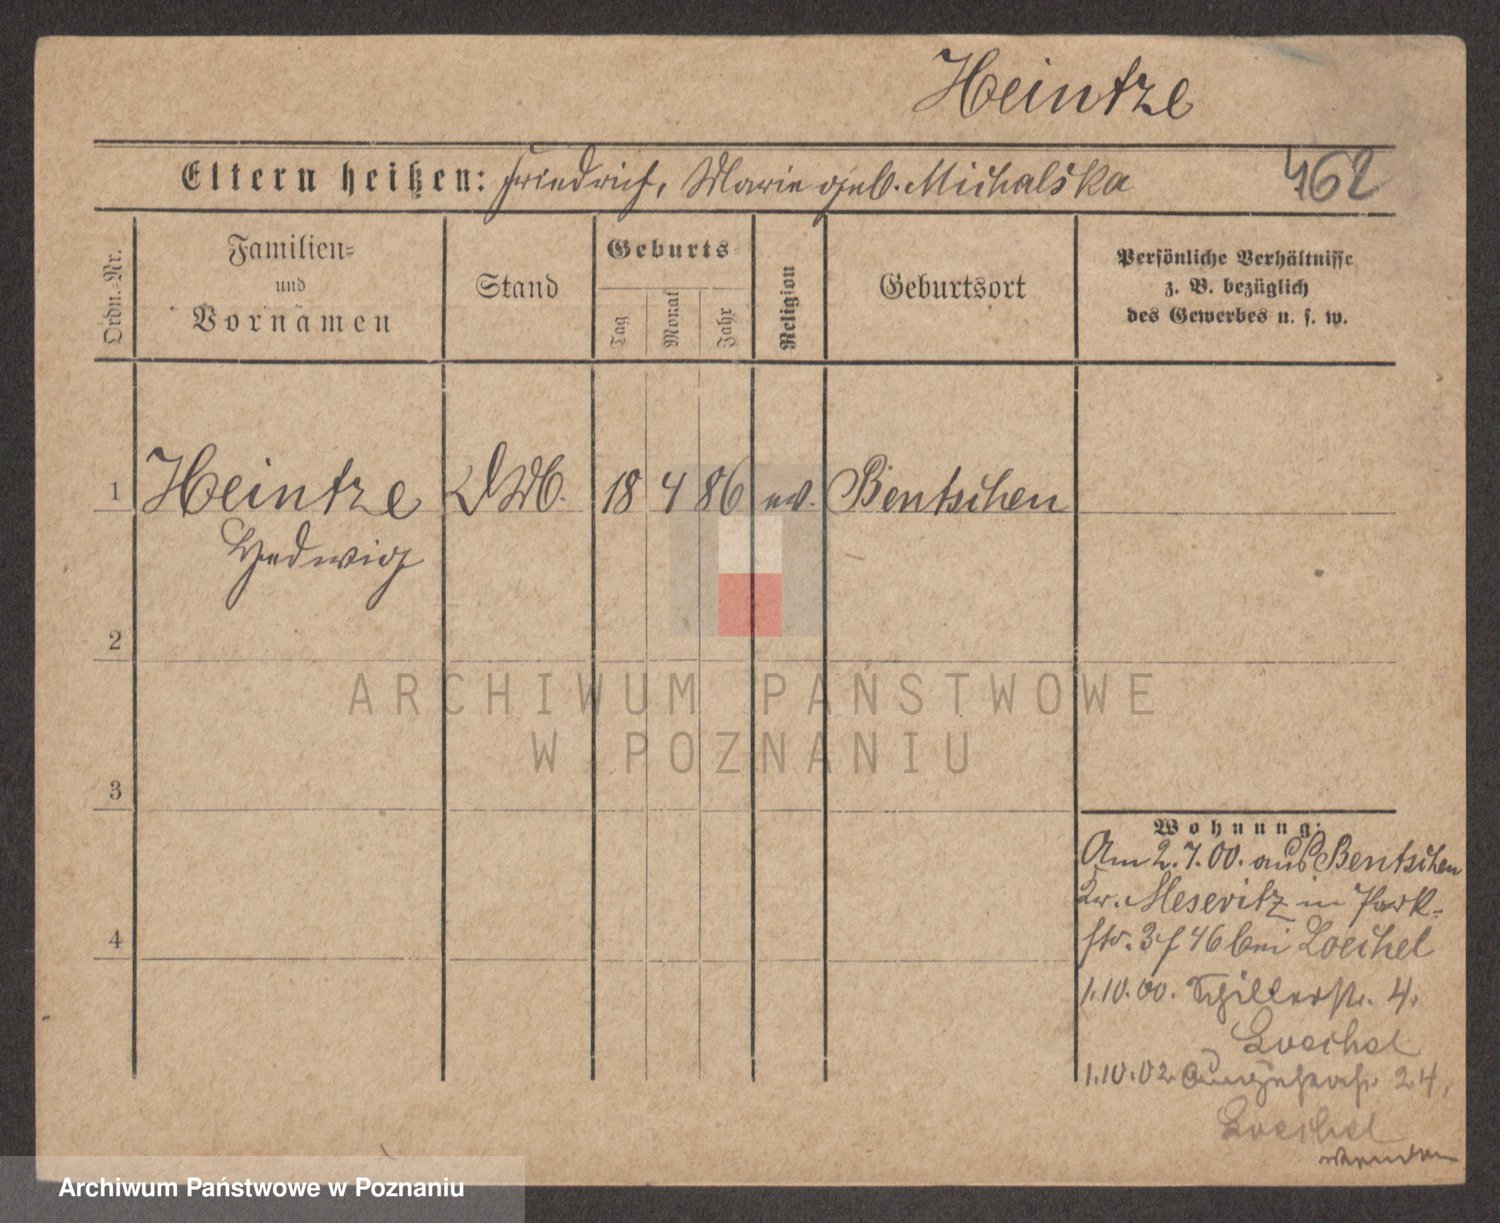 Heintze
Eltern heißen: Friedrich, Marie geb. Michalska
462
Ordn.-Nr.
Familien- und Vornamen
Stand
Geburts-
Tag
Monat
Jahr
Religion
Geburtsort
Persönliche Verhältnisse
z. B. bezüglich
des Gewerbes u. s. w.
1 Heintze DM. 18 4 86 ev. Bentschen
Hedwig
2
3
4
Wohnung:
Am 2.7.00. aus Bentschen
Kr. Meseritz in Park-
str. 3 f 46 bei Loechel
1.10.00. Schillerstr. 4.
Loechel
1.10.02 24,
Loechel
wenden
ARCHIWUM PAŃSTWOWE
W POZNANIU
Archiwum Państwowe w Poznaniu